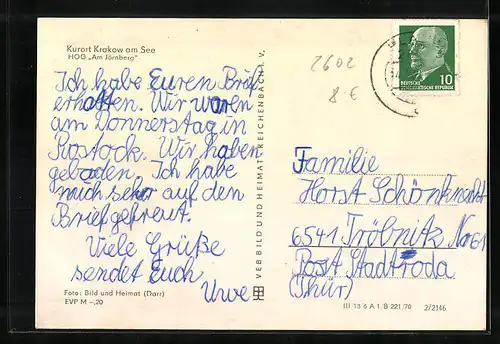 Kurort Krakow am See
HOG „Am Jörnberg"
Ich habe Euren Brief
erhatten. Wir waren
am Donnerstag in
Rostock. Wir haben
gebaden. Ich habe
mich sehr auf den
Brief gefreut.
Viele Grüße
sendet Euch
Uwe
Foto: Bild und Heimat (Darr)
EVP M –,20
VEB BILD UND HEIMAT REICHENBACH I. V.
2602
8 €
10
DEUTSCHE
DEMOKRATISCHE REPUBLIK
Familie
Horst Schönknecht
6541 Tröbnitz Nr 61
Post Stadtroda
(Thür)
III 18 6 A 1, B 221/70
2/2146